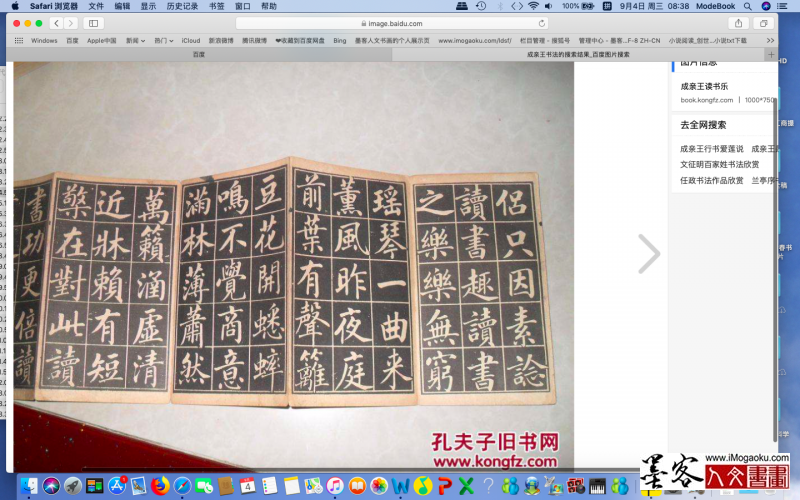 Safari 浏览器 文件 编辑 显示 历史记录 书签 窗口 帮助
100% 9月4日 周三 08:38 ModeBook
image.baidu.com
Windows 百度 Apple中国 新闻 热门 iCloud 新浪微博 腾讯微博 ❤收藏到百度网盘 Bing 墨客人文书画的个人展示页 www.imogaoku.com/ldsf/ 栏目管理 - 搜狐号 管理中心 - 墨客...F-8 ZH-CN 小说阅读_创世...小说txt下载
百度
成亲王书法的搜索结果_百度图片搜索
侣只因素諗
讀書趣讀書
之樂樂無窮
瑶琴一曲来
薰風昨夜庭
前葉有聲籬
豆花開蟋蟀
鳴不覺商意
滿林薄蕭然
萬籟涵虛清
近牀賴有短
檠在對此讀
書功更倍讀
孔夫子旧书网
www.kongfz.com
图片信息
成亲王读书乐
book.kongfz.com | 1000*750
去全网搜索
成亲王行书爱莲说 成亲王
文征明百家姓书法欣赏
任政书法作品欣赏 兰亭序
www.iMogaoku.com
墨客人文書畫